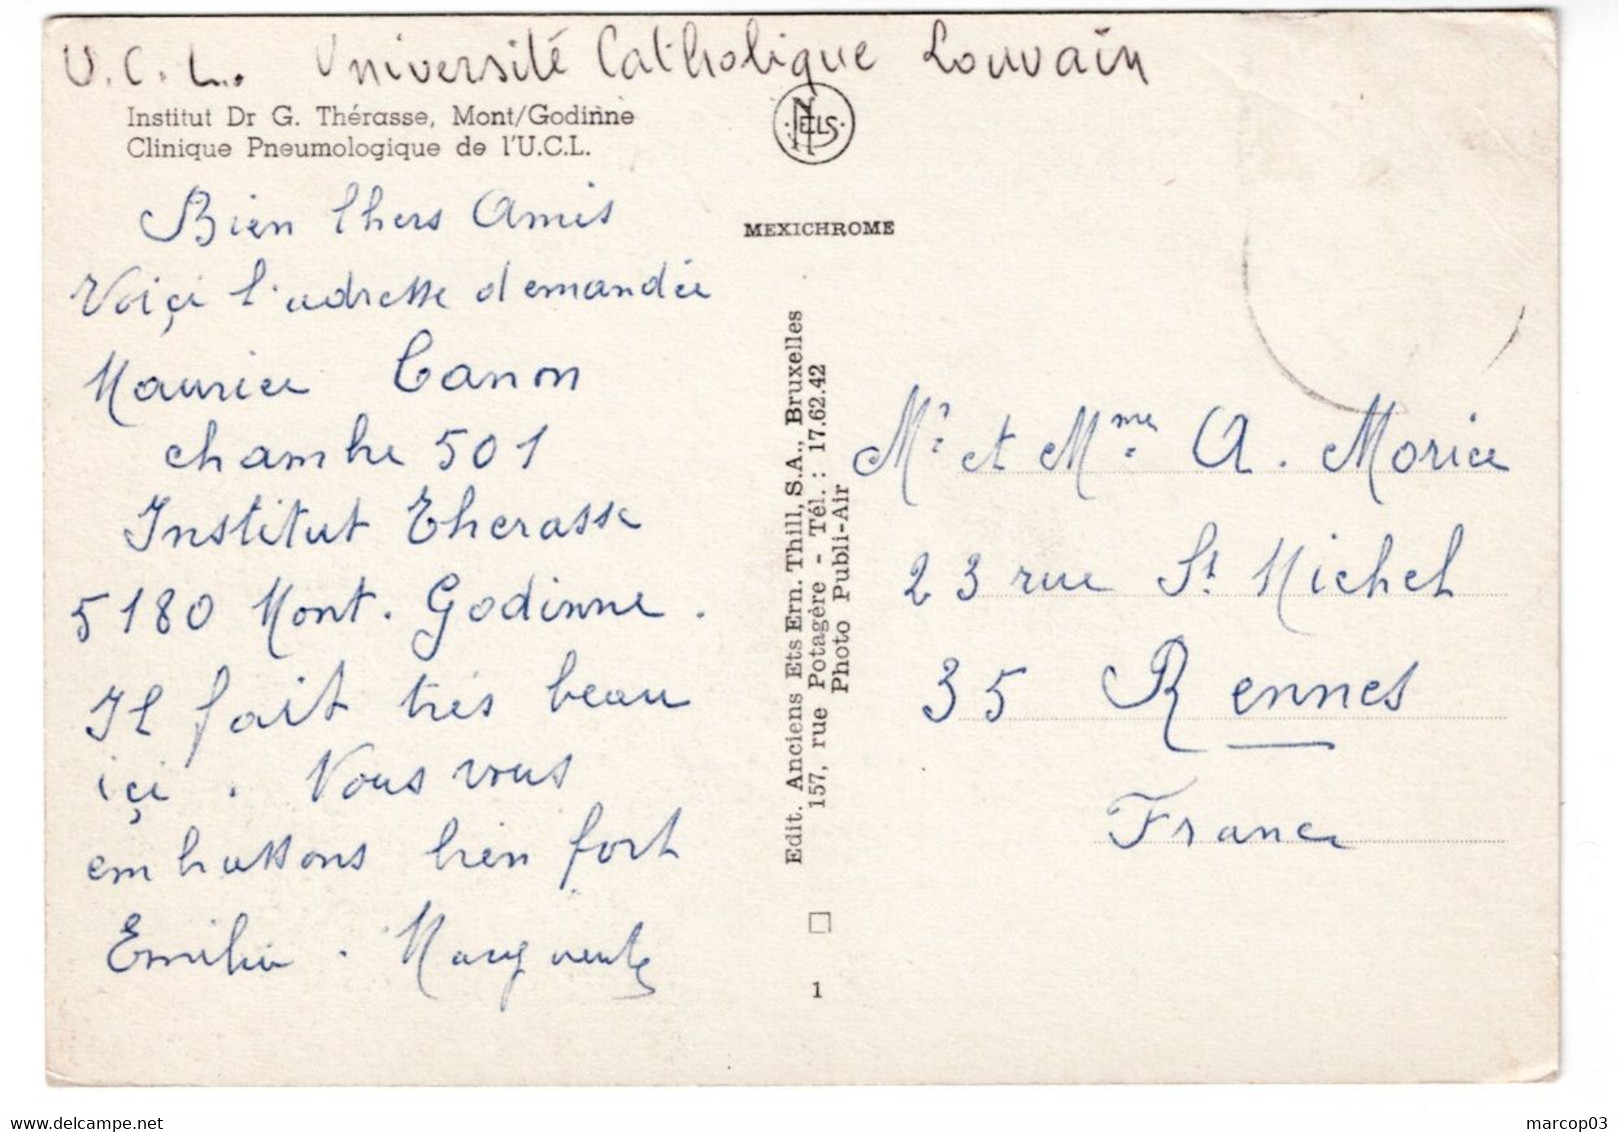 U.C.L. Université Catholique Louvain
Institut Dr G. Thérasse, Mont/Godinne
Clinique Pneumologique de l'U.C.L.
NELS
MEXICHROME
Bien Chers Amis
Voiçi l'adresse demandée
Maurice Canon
chambre 501
Institut Therasse
5180 Mont. Godinne.
Il fait très beau
içi. Nous vous
embrassons bien fort
Emilie.
Edit. Anciens Ets Ern. Thill, S.A., Bruxelles
157, rue Potagère - Tél. : 17.62.42
Photo Publi-Air
1
Mr et Mme A. Morice
23 rue St Michel
35 Rennes
France
marcop03